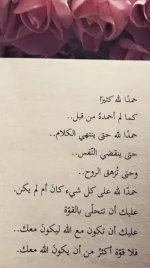 حمدًا لله كثيرًا
كما لم أحمدهُ من قبل..
حمدًا لله حتى ينتهي الكلام..
حتى ينقضي النَّفَس..
وحتى تُزهق الروح..
حمدًا لله على كل شيء كانَ أم لم يكن.
عليك أن تتحلّى بالقوّة
عليك أن تكون مع الله ليكونَ معك..
فلا قوّة أكثرُ من أن يكونَ الله معك.